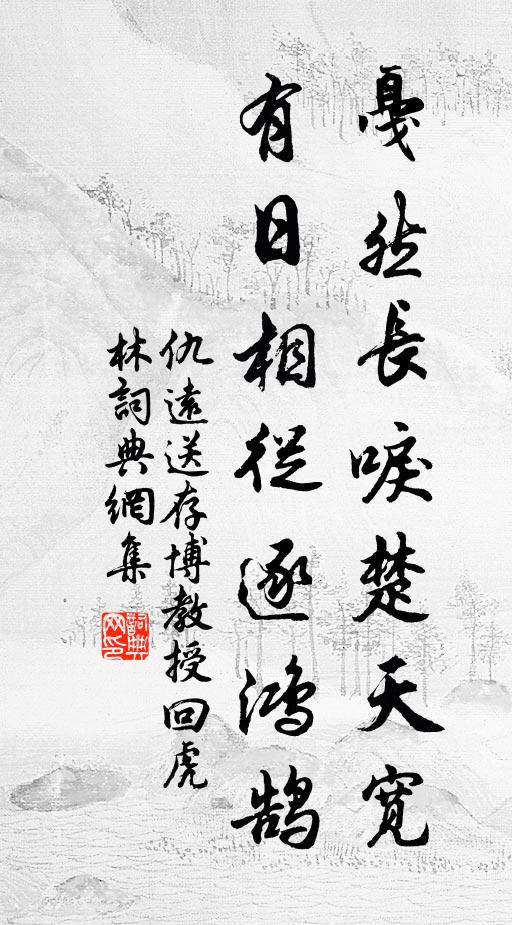 戛然長唳楚天寬
有日相從逐鴻鵠
仇遠送存博教授回虎
林詞典網集
詞典網印